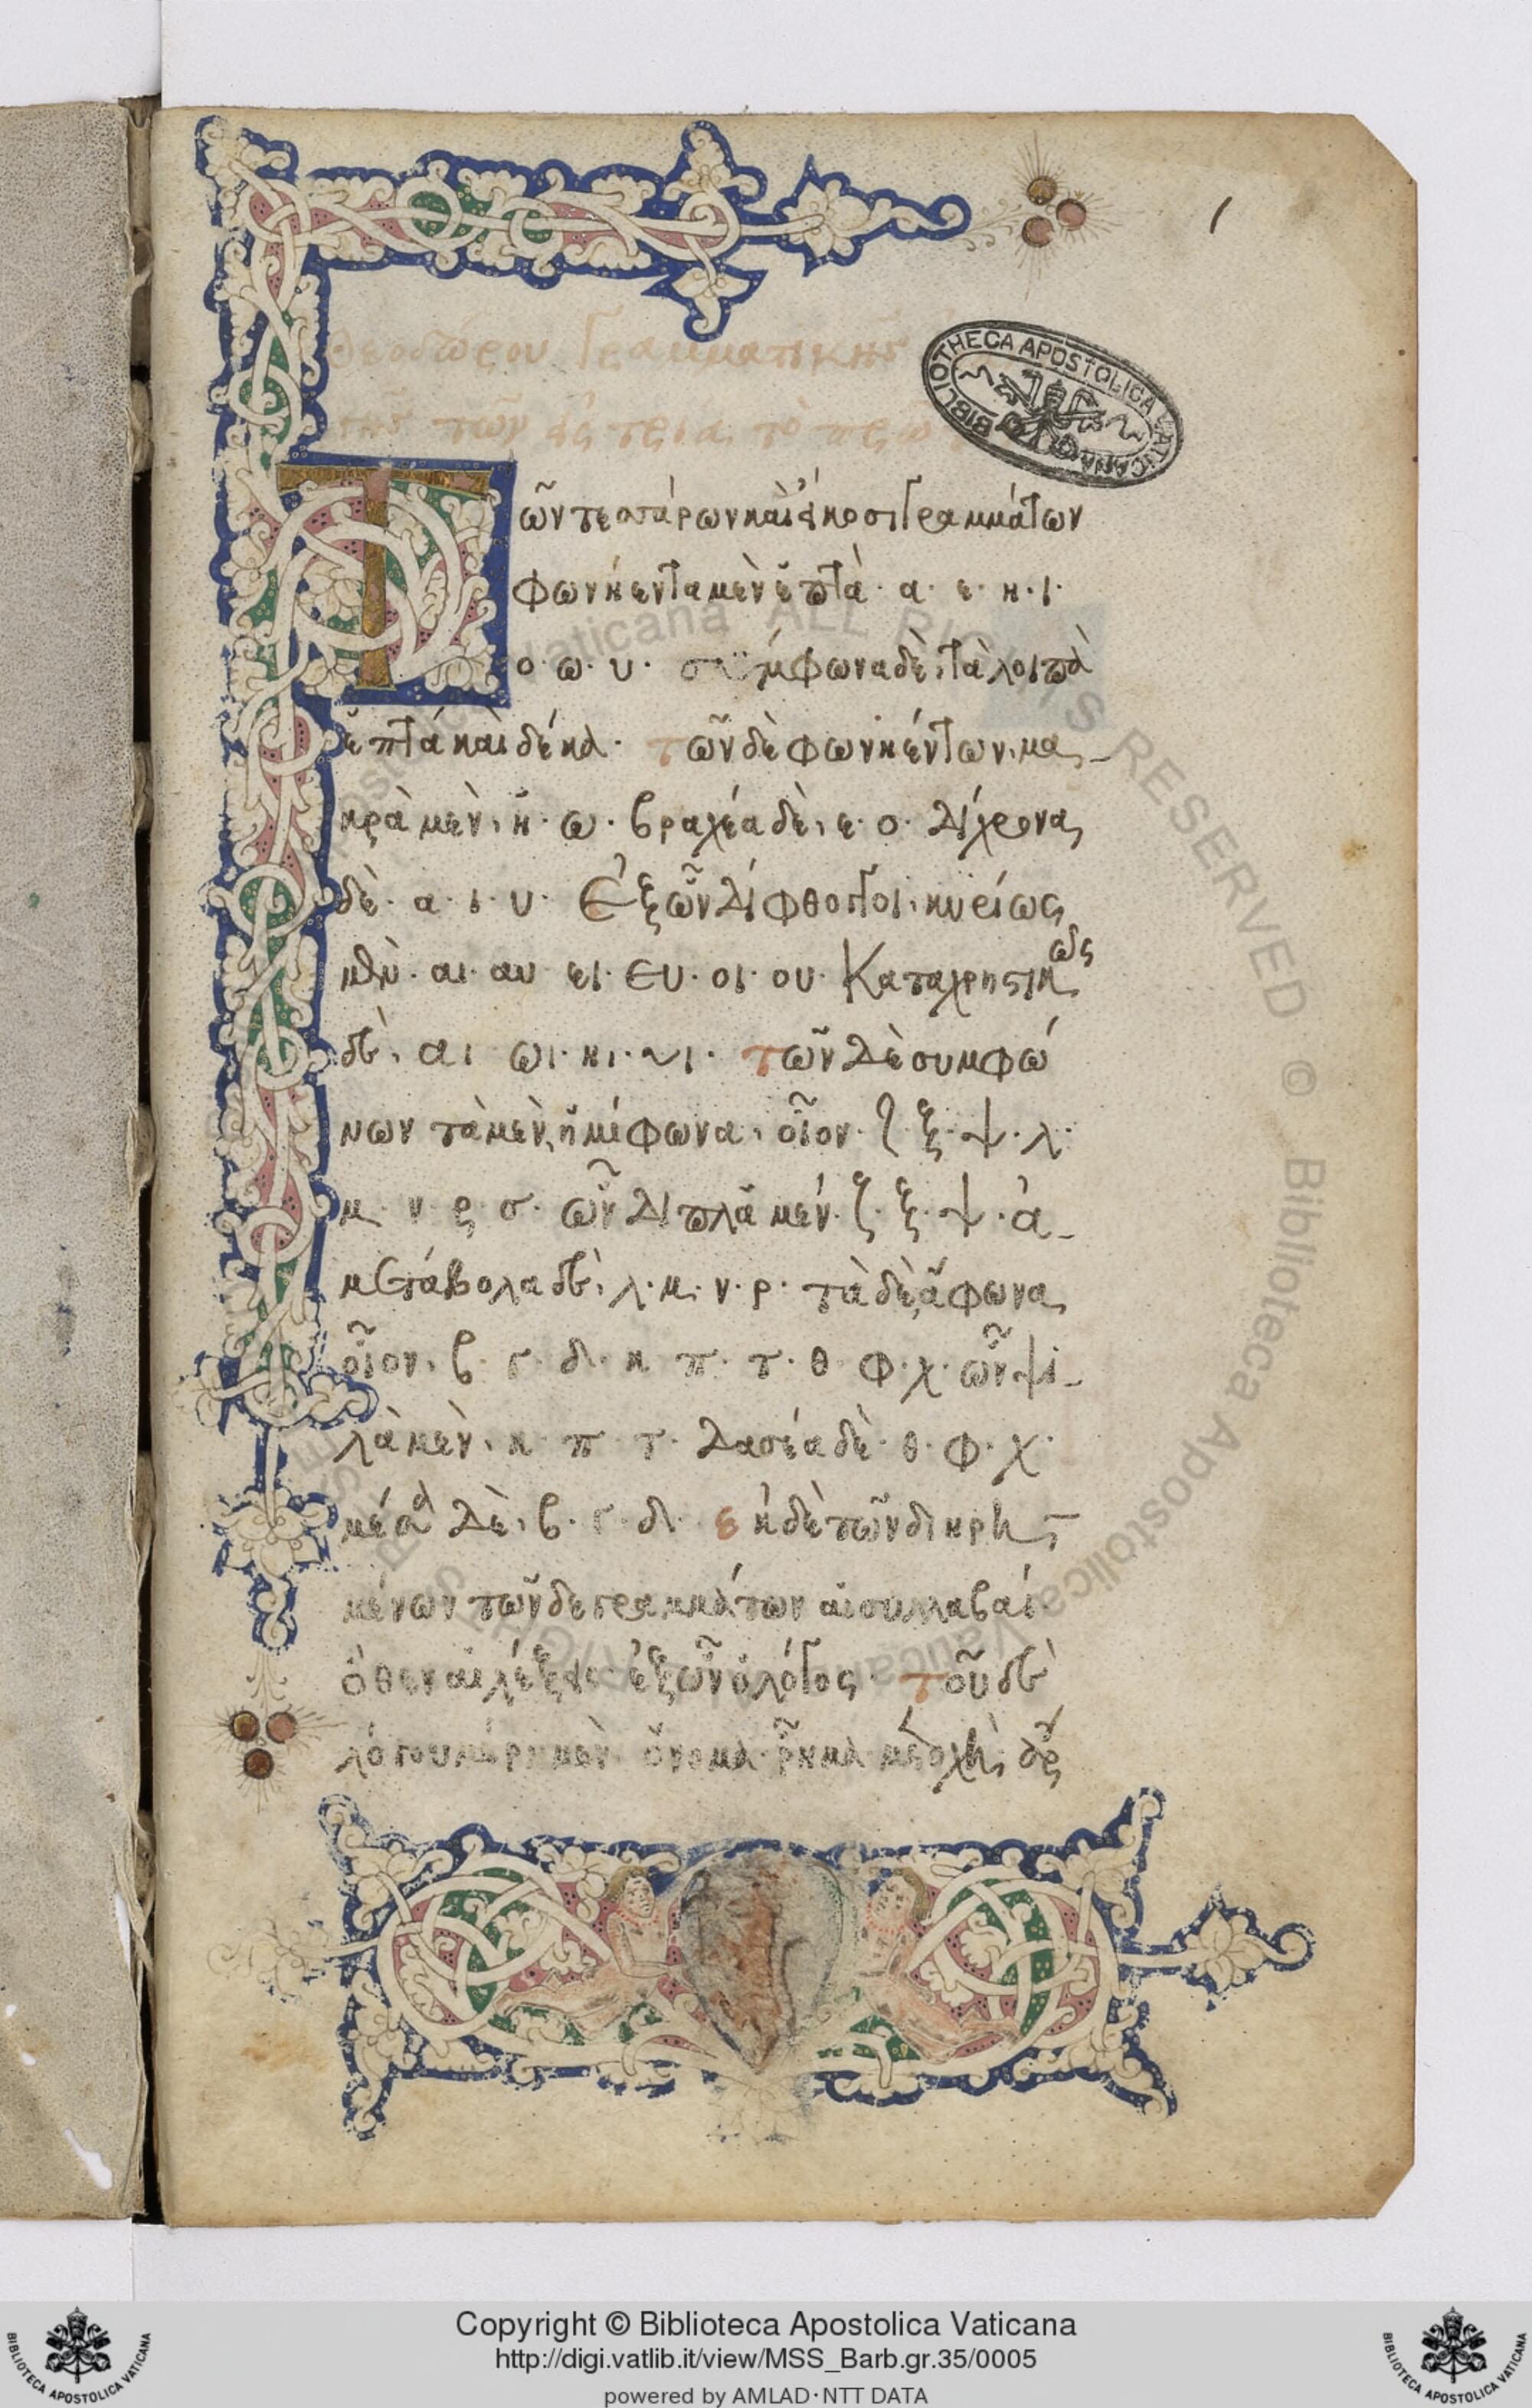 1
Θεοδώρου Γραμματικῆς
τῶν εἰς τρία τὸ πρω
BIBLIOTHECA APOSTOLICA VATICANA
Τῶν τεσσάρων καὶ εἴκοσι γραμμάτων
φωνήεντα μὲν ἑπτὰ· α· ε· η· ι·
ο· ω· υ· σύμφωνα δὲ, τὰ λοιπὰ
ἑπτὰ καὶ δέκα· τῶν δὲ φωνηέντων, μα-
κρὰ μὲν, η· ω· βραχέα δὲ, ε· ο· δίχρονα
δὲ· α· ι· υ· Ἐξ ὧν δίφθογγοι, κυρίως
μὲν· αι· αυ· ει· ευ· οι· ου· Καταχρηστικῶς
δὲ, αι ωι· ηι· υι· τῶν δὲ συμφώ
νων τὰ μὲν, ἡμίφωνα, οἷον· ζ· ξ· ψ· λ·
μ· ν· ρ· σ· ὧν διπλᾶ μέν· ζ· ξ· ψ· ἀ-
μετάβολα δὲ, λ· μ· ν· ρ· τὰ δὲ, ἄφωνα
οἷον, β· γ· δ· κ· π· τ· θ· φ· χ· ὧν ψι-
λὰ μὲν, κ· π· τ· δασέα δὲ· θ· φ· χ·
μέσα δὲ, β· γ· δ· ἐκ δὲ τῶν διῃρη-
μένων τῶνδε γραμμάτων αἱ συλλαβαί·
ὅθεν αἱ λέξεις· ἐξ ὧν ὁ λόγος· τοῦ δὲ
λόγου μέρη μὲν· ὄνομα· ῥῆμα· μετοχὴ, ἄρ
Copyright © Biblioteca Apostolica Vaticana
http://digi.vatlib.it/view/MSS_Barb.gr.35/0005
powered by AMLAD·NTT DATA